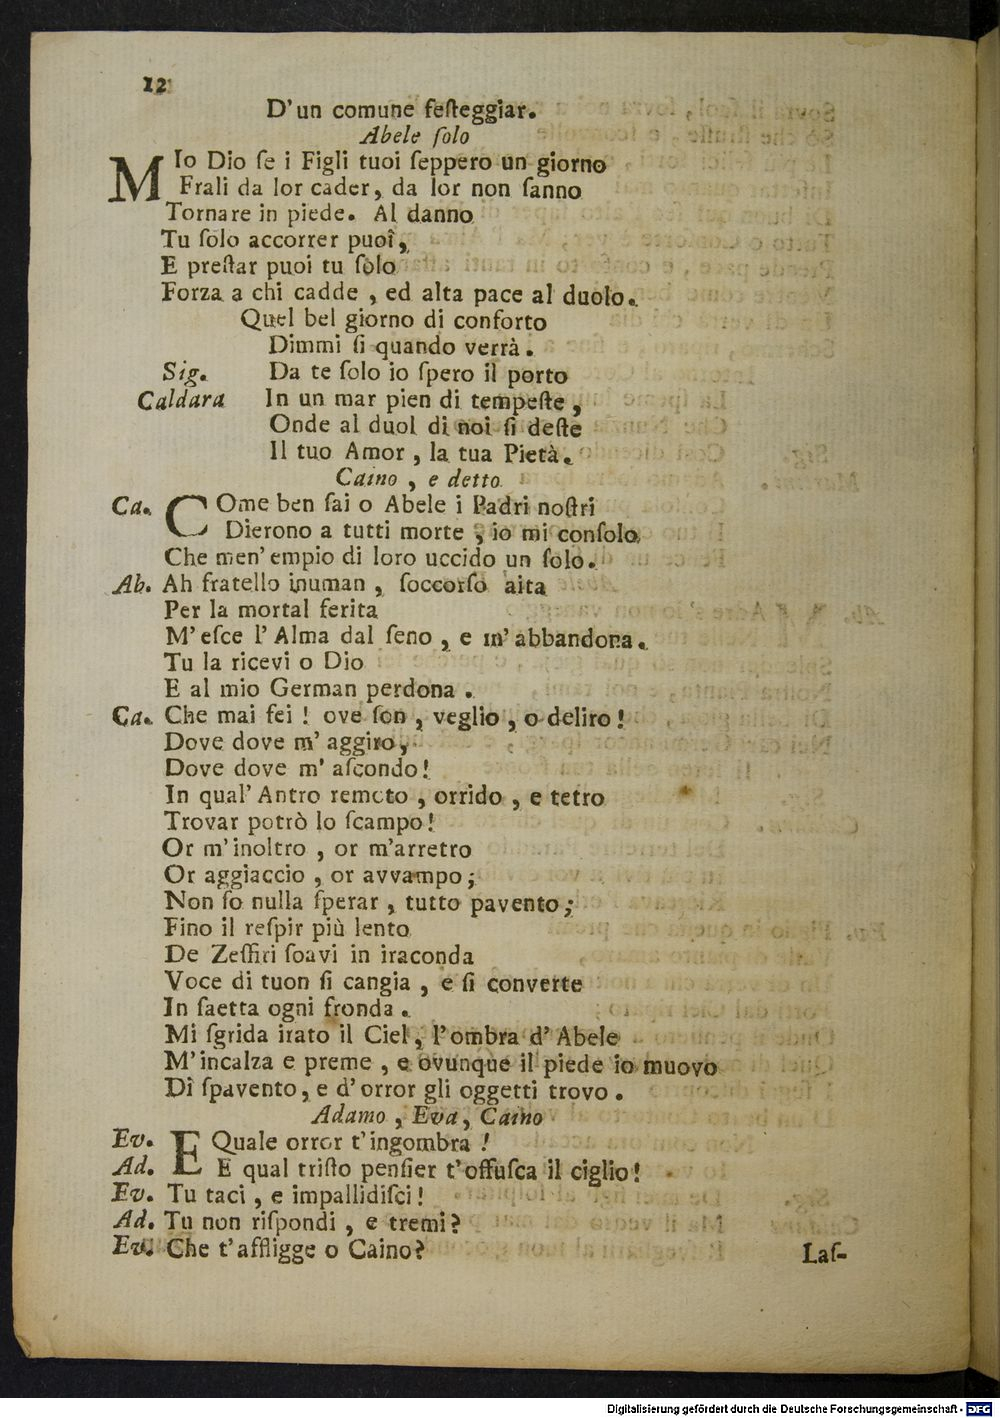 12
D'un comune feſteggiar.
Abele ſolo
MIo Dio ſe i Figli tuoi ſeppero un giorno
Frali da lor cader, da lor non ſanno
Tornare in piede. Al danno
Tu ſolo accorrer puoi,
E preſtar puoi tu ſolo
Forza a chi cadde, ed alta pace al duolo.
Quel bel giorno di conforto
Dimmi ſi quando verrà.
Sig. Da te ſolo io ſpero il porto
Caldara In un mar pien di tempeſte,
Onde al duol di noi ſi deſte
Il tuo Amor, la tua Pietà.
Caino, e detto
Ca. COme ben ſai o Abele i Padri noſtri
Dierono a tutti morte, io mi conſolo
Che men' empio di loro uccido un ſolo.
Ab. Ah fratello inuman, ſoccorſo aita
Per la mortal ferita
M'eſce l'Alma dal ſeno, e m'abbandona.
Tu la ricevi o Dio
E al mio German perdona.
Ca. Che mai fei! ove ſon, veglio, o deliro!
Dove dove m'aggiro,
Dove dove m'aſcondo!
In qual' Antro remoto, orrido, e tetro
Trovar potrò lo ſcampo!
Or m'inoltro, or m'arretro
Or aggiaccio, or avvampo;
Non ſo nulla ſperar, tutto pavento;
Fino il reſpir più lento
De Zeffiri ſoavi in iraconda
Voce di tuon ſi cangia, e ſi converte
In ſaetta ogni fronda.
Mi ſgrida irato il Ciel, l'ombra d'Abele
M'incalza e preme, e ovunque il piede io muovo
Di ſpavento, e d'orror gli oggetti trovo.
Adamo, Eva, Caino
Ev. E Quale orror t'ingombra!
Ad. E qual triſto penſier t'offuſca il ciglio!
Ev. Tu taci, e impallidiſci!
Ad. Tu non riſpondi, e tremi?
Ev. Che t'affligge o Caino?
Laſ-
Digitalisierung gefördert durch die Deutsche Forschungsgemeinschaft - DFG